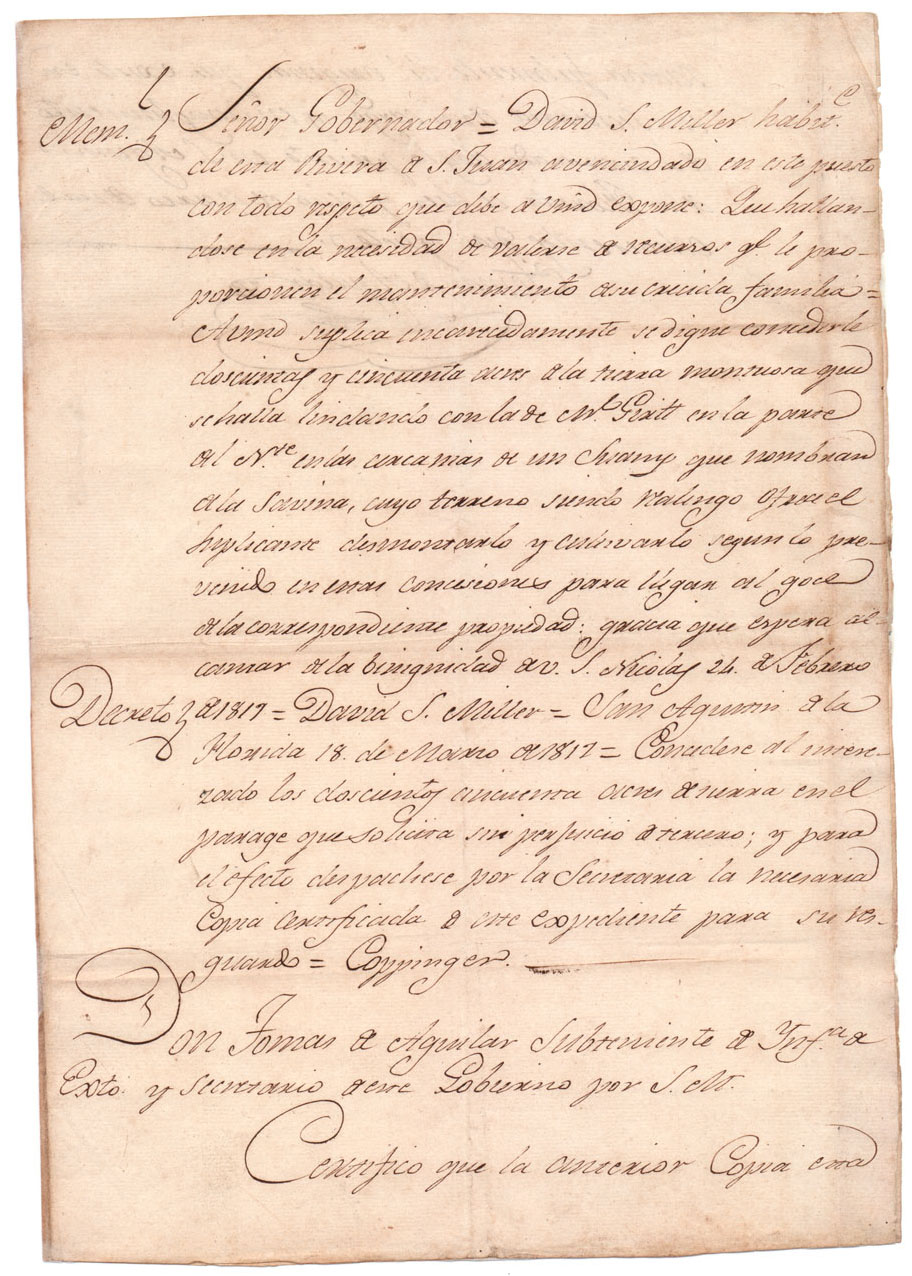 Mem.l Señor Gobernador = David S. Miller habit.e
de esta Rivera de S. Juan avecindado en este puesto
con todo respeto que debe a Vmd expone: Que hallan-
dose en la necesidad de valerse de recursos q.e le pro-
porcionen el mantenimiento de su crecida familia =
A vmd suplica encarecidamente se digne concederle
doscientas y cincuenta acres de la tierra montuosa que
se halla lindando con la de Mr. en la parte
del N.rte en las cercanias de un que nombran
de la Savina, cuyo terreno siendo Realengo ofrece el
suplicante desmontarlo y cultivarlo segun lo pre-
venido en estas concesiones para llegar al goce
de la correspondiente propiedad: gracia que espera al-
canzar de la benignidad de V. S. Nicolas 24. de Febrero
Decreto de 1817 = David S. Miller = San Agustin de la
Florida 18. de Marzo de 1817 = Concedese al intere-
zado los doscientos cincuenta acres de tierra en el
parage que solicita sin perjuicio de tercero; y para
el efecto despachese por la Secretaria la necesaria
Copia certificada de este expediente para su res-
guardo = Coppinger.
Don Tomas de Aguilar Subteniente de Ynf.a de
Exto. y Secretario de este Gobierno por S. M.
Certifico que la anterior Copia está